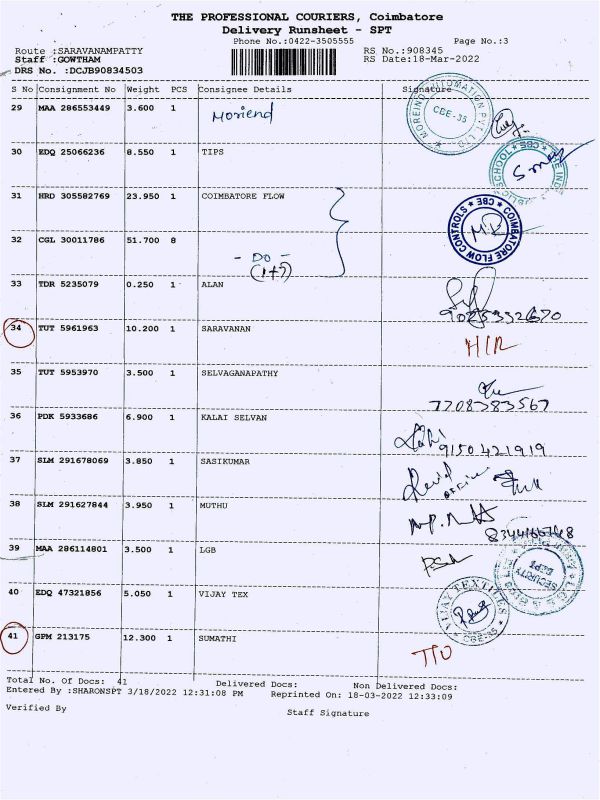 THE PROFESSIONAL COURIERS, Coimbatore
Delivery Runsheet - SPT
Phone No.:0422-3505555 Page No.:3
Route :SARAVANAMPATTY RS No.:908345
Staff :GOWTHAM RS Date:18-Mar-2022
DRS No. :DCJB90834503
S No Consignment No Weight PCS Consignee Details Signature
29 MAA 286553449 3.600 1 CBE-35
30 EDQ 25066236 8.550 1 TIPS
31 HRD 305582769 23.950 1 COIMBATORE FLOW
COIMBATORE FLOW CONTROLS ★ CBE ★
32 CGL 30011786 51.700 8 - DO -
(1+7)
33 TDR 5235079 0.250 1 ALAN
34 TUT 5961963 10.200 1 SARAVANAN
35 TUT 5953970 3.500 1 SELVAGANAPATHY
7708783567
36 PDK 5933686 6.900 1 KALAI SELVAN
9150421919
37 SLM 291678069 3.850 1 SASIKUMAR
38 SLM 291627844 3.950 1 MUTHU
39 MAA 286114801 3.500 1 LGB
SECURITY
40 EDQ 47321856 5.050 1 VIJAY TEX
VIJAY TEXTILES
CBE-35
41 GPM 213175 12.300 1 SUMATHI
Total No. Of Docs: 41 Delivered Docs: Non Delivered Docs:
Entered By :SHARONSPT 3/18/2022 12:31:08 PM Reprinted On: 18-03-2022 12:33:09
Verified By Staff Signature